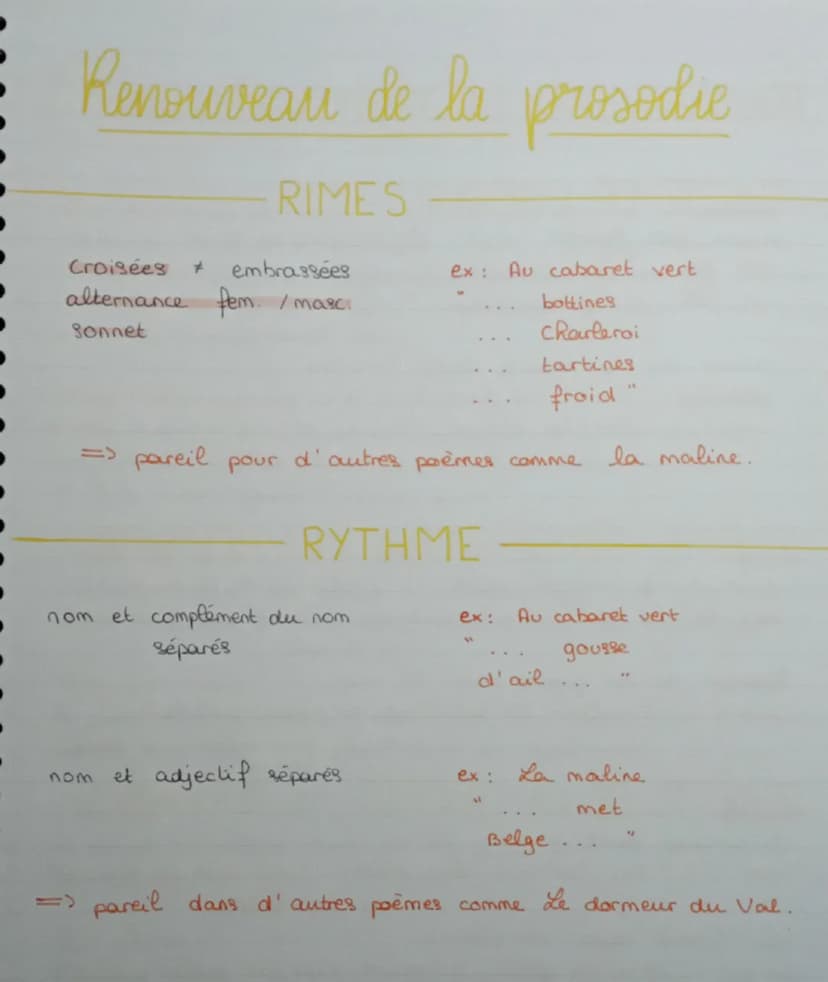 Renouveau de la prosodie
RIMES
croisées ≠ embrassées
alternance fem. / masc.
sonnet
ex : Au cabaret vert
" ... bottines
... Charleroi
... tartines
... froid "
=> pareil pour d'autres poèmes comme la maline.
RYTHME
nom et complément du nom
séparés
ex : Au cabaret vert
" ... gousse
d'ail ... "
nom et adjectif séparés
ex : La maline
" ... met
Belge ... "
=> pareil dans d'autres poèmes comme Le dormeur du Val.